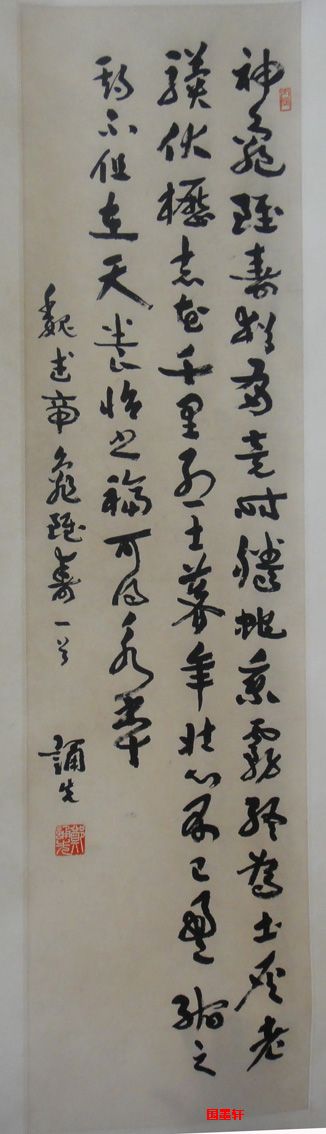 神龜雖壽猶有竟時騰蛇乘霧終為土灰老
驥伏櫪志在千里烈士暮年壯心不已盈縮之
期不但在天養怡之福可得永年
魏武帝龜雖壽一首
誦先
鄭誦先
国墨轩